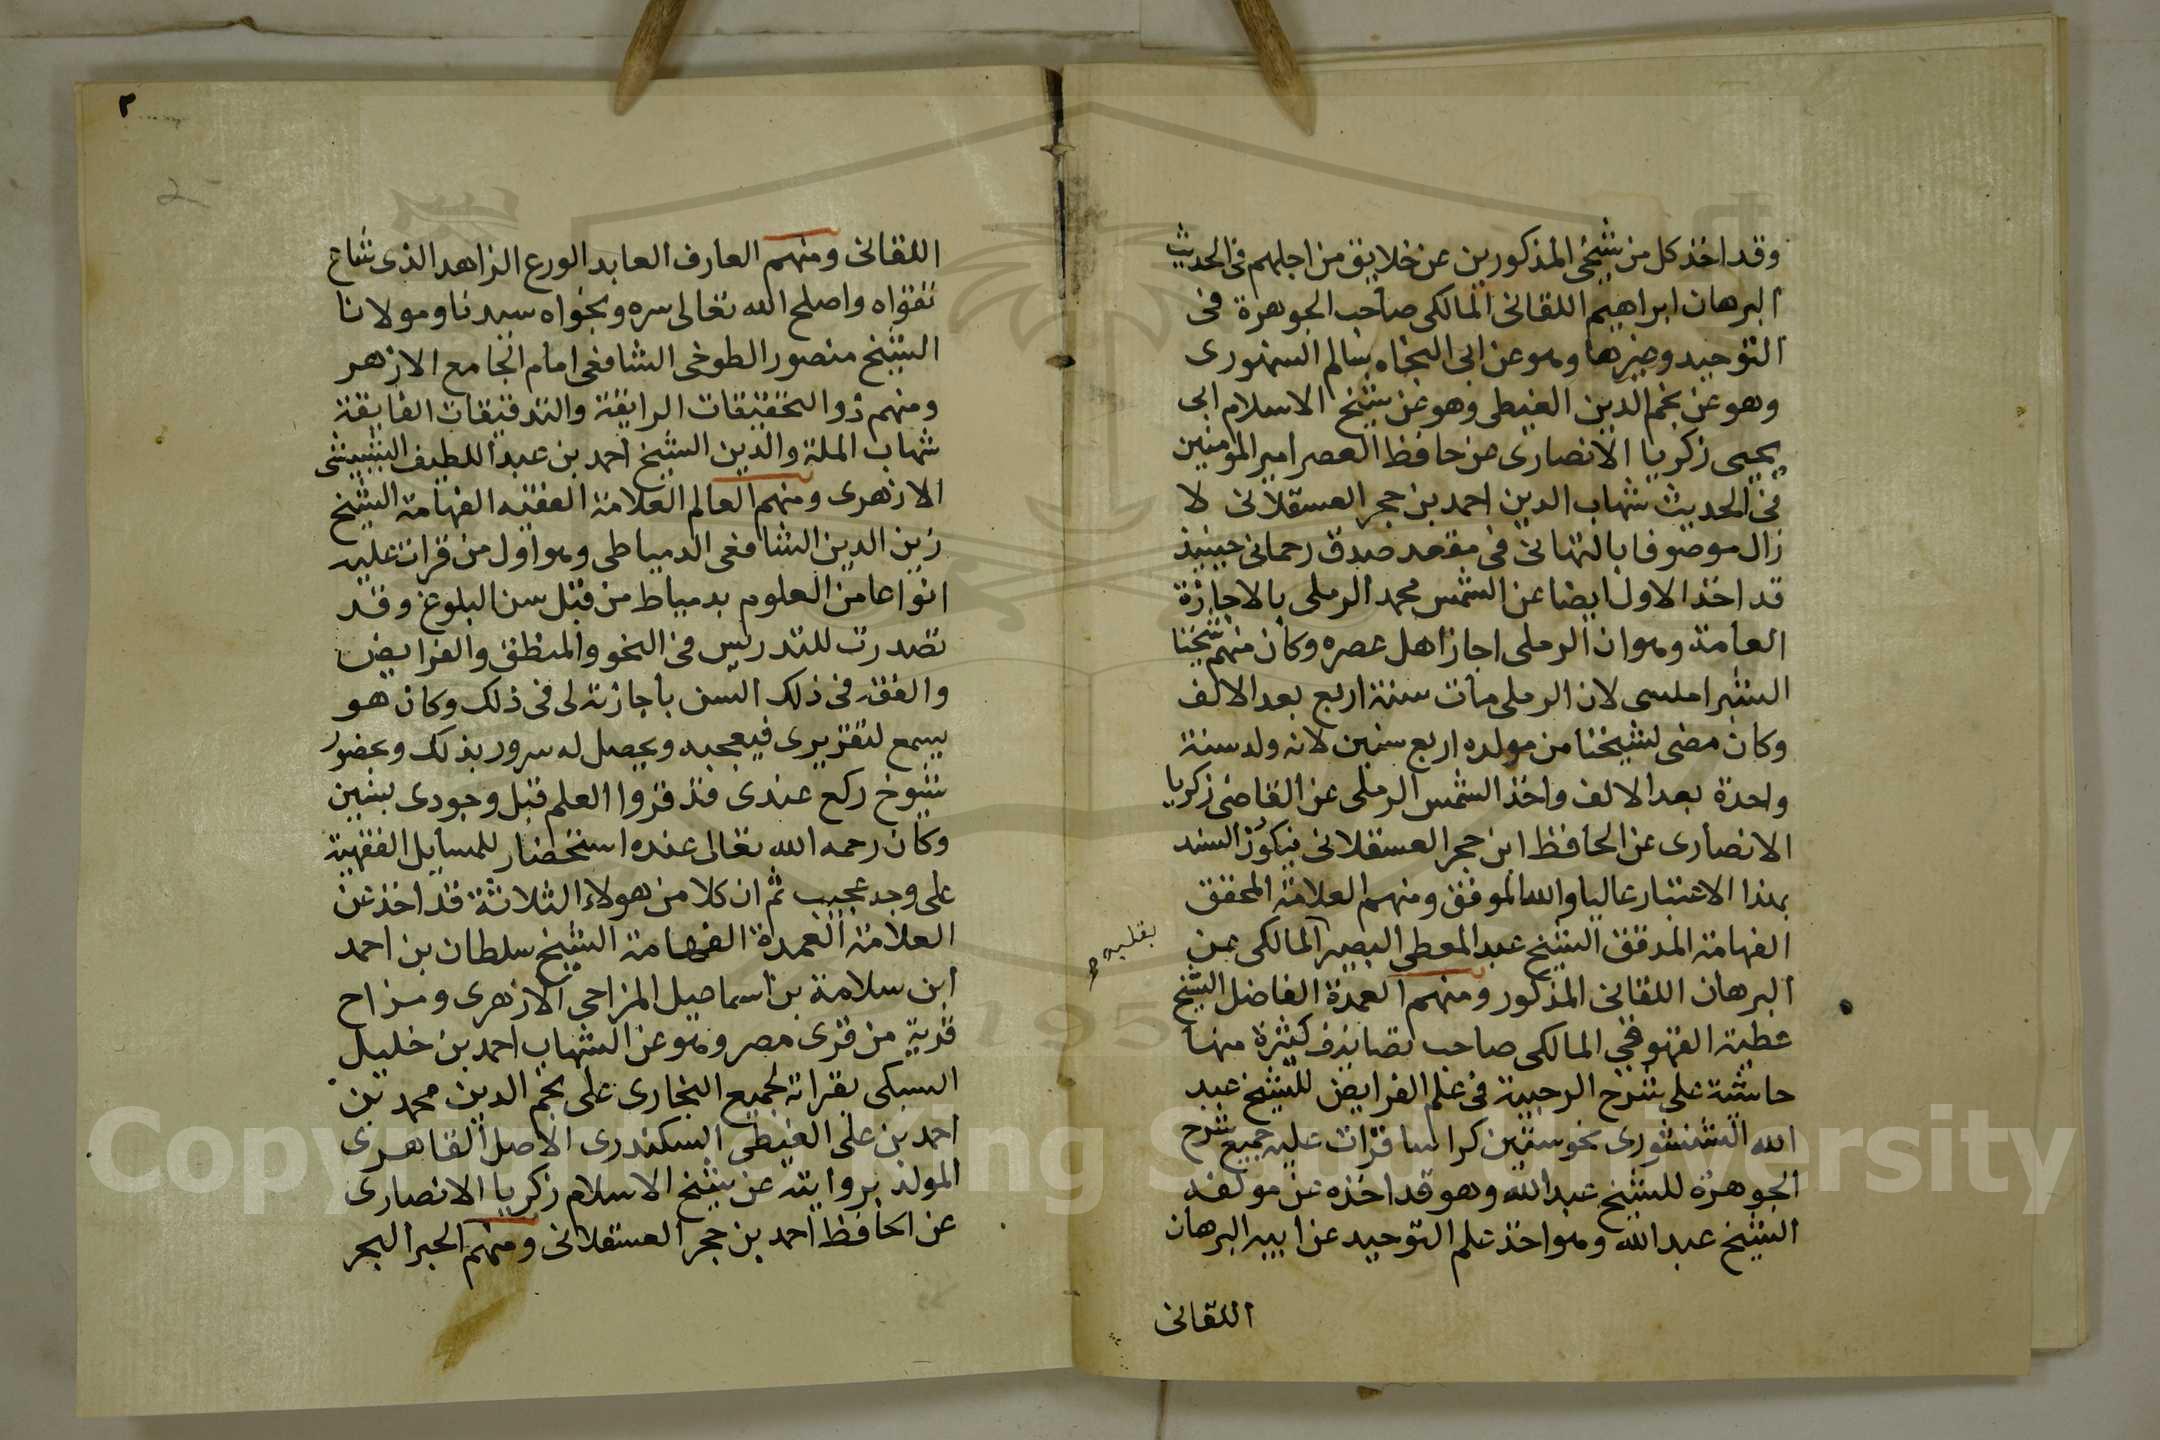 وقد اخذ كل من شيخى المذكورين عن خلايق من اجلهم فى الحديث
البرهان ابراهيم اللقانى المالكى صاحب الجوهرة فى
التوحيد وغيرها وهو عن ابى النجاه سالم السنهورى
وهو عن نجم الدين الغيطى وهو عن شيخ الاسلام ابى
يحيى زكريا الانصارى عن حافظ العصر امير المومنين
فى الحديث شهاب الدين احمد بن حجر العسقلانى لا
زال موصوفا بالتهانى فى مقعد صدق رحمانى حينيذ
قد اخذ الاول ايضا عن الشمس محمد الرملى بالاجازة
العامة وهو ان الرملى اجاز اهل عصره وكان منهم شيخنا
الشبراملسى لان الرملى مات سنة اربع بعد الالف
وكان مضى لشيخنا من مولده اربع سنين لانه ولد سنة
واحدة بعد الالف واخذ الشمس الرملى عن القاضى زكريا
الانصارى عن الحافظ ابن حجر العسقلانى فيكون السند
بهذا الاعتبار عاليا والله الموفق ومنهم العلامة المحقق
الفهامة المدقق الشيخ عبد المعطى البصير المالكى عن
بقلبه
البرهان اللقانى المذكور ومنهم العمدة الفاضل الشيخ
عطية القهوقى المالكى صاحب تصانيف كثيرة منها
حاشية على شرح الرحبية فى علم الفرايض للشيخ عبد
الله الشنشورى نحو ستين كراسا قرات عليه جميع شرح
الجوهرة للشيخ عبد الله وهو قد اخذه عن مولفه
الشيخ عبد الله وهو اخذ علم التوحيد عن ابيه البرهان
اللقانى
٣
2
اللقانى ومنهم العارف العابد الورع الزاهد الذى شاع
تقواه واصلح الله تعالى سره ونجواه سيدنا ومولانا
الشيخ منصور الطوخى الشافعى امام الجامع الازهر
ومنهم ذو التحقيقات الرايقة والتدقيقات الفايقة
شهاب الملة والدين الشيخ احمد بن عبد اللطيف البشبيشى
الازهرى ومنهم العالم العلامة الفقيه الفهامة الشيخ
زين الدين الشافعى الدمياطى وهو اول من قرات عليه
انواعا من العلوم بدمياط من قبل سن البلوغ وقد
تصدرت للتدريس فى النحو والمنطق والفرايض
والفقه فى ذلك السن باجازته لى فى ذلك وكان هو
يسمع لتقريرى فيعجبه ويحصل له سرور بذلك وبحضور
شيوخ ركع عندى قد قروا العلم قبل وجودى بسنين
وكان رحمه الله تعالى عنده استحضار للمسايل الفقهية
على وجه عجيب ثم ان كلا من هولاء الثلاثة قد اخذ عن
العلامة العمدة الفهامة الشيخ سلطان بن احمد
ابن سلامة بن اسماعيل المزاحى الازهرى ومزاح
قرية من قرى مصر وهو عن الشهاب احمد بن خليل
السبكى بقراته لجميع البخارى على نجم الدين محمد بن
احمد بن على الغيطى السكندرى الاصل القاهرى
المولد بروايته عن شيخ الاسلام زكريا الانصارى
عن الحافظ احمد بن حجر العسقلانى ومنهم الحبر البحر